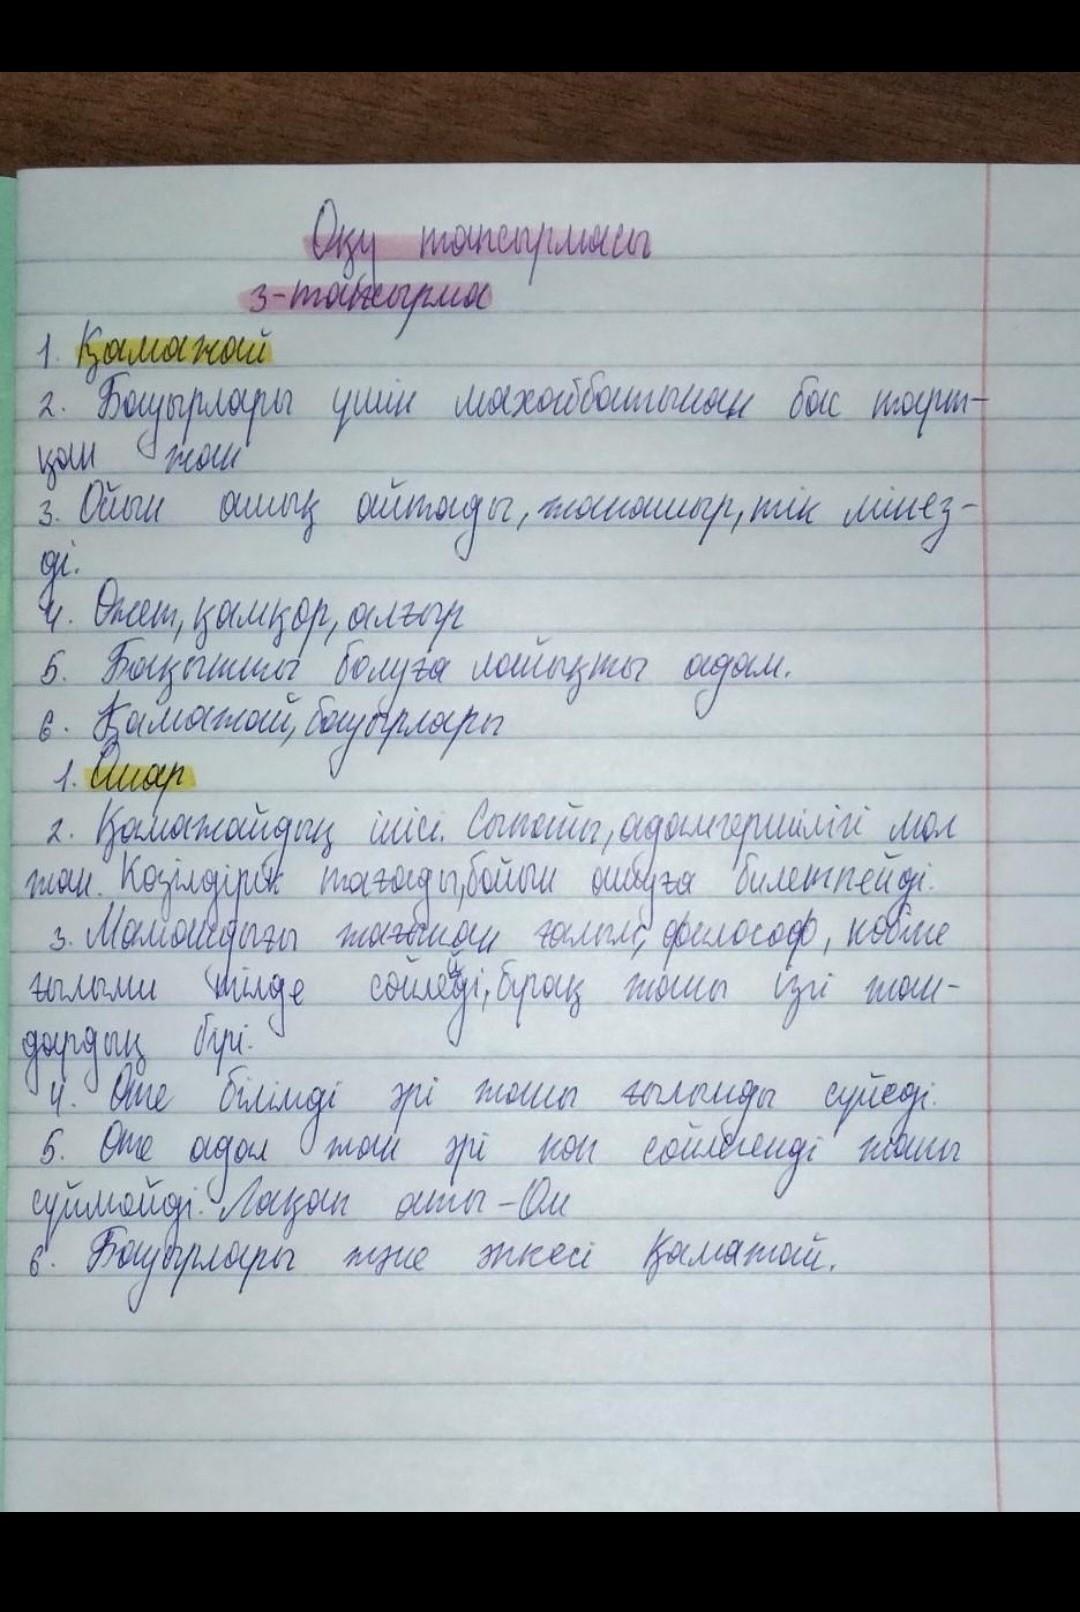 Оқу тапсырмасы
3-тапсырма
1. Қамажай
2. Бауырлары үшін махаббатынан бас тарт-
қан жан
3. Ойын ашық айтады, жанашыр, тік мінез-
ді.
4. Өжет, қамқор, алғыр
5. Бақытты болуға лайықты адам.
6. Қамажай, бауырлары
1. Омар
2. Қамажайдың інісі. Сыпайы, адамгершілігі мол
жан. Көзілдірік тағады, бойын ашуға билетпейді.
3. Мамандығы жағынан ғалым, философ, көбіне
ғылыми тілде сөйлейді, бірақ жаны ізгі жан-
дардың бірі.
4. Өте білімді әрі жаны ғылымды сүйеді.
5. Өте адал жан әрі көп сөйлегенді жаны
сүймейді. Лақап аты - Ом
6. Бауырлары және әпкесі Қамажай.